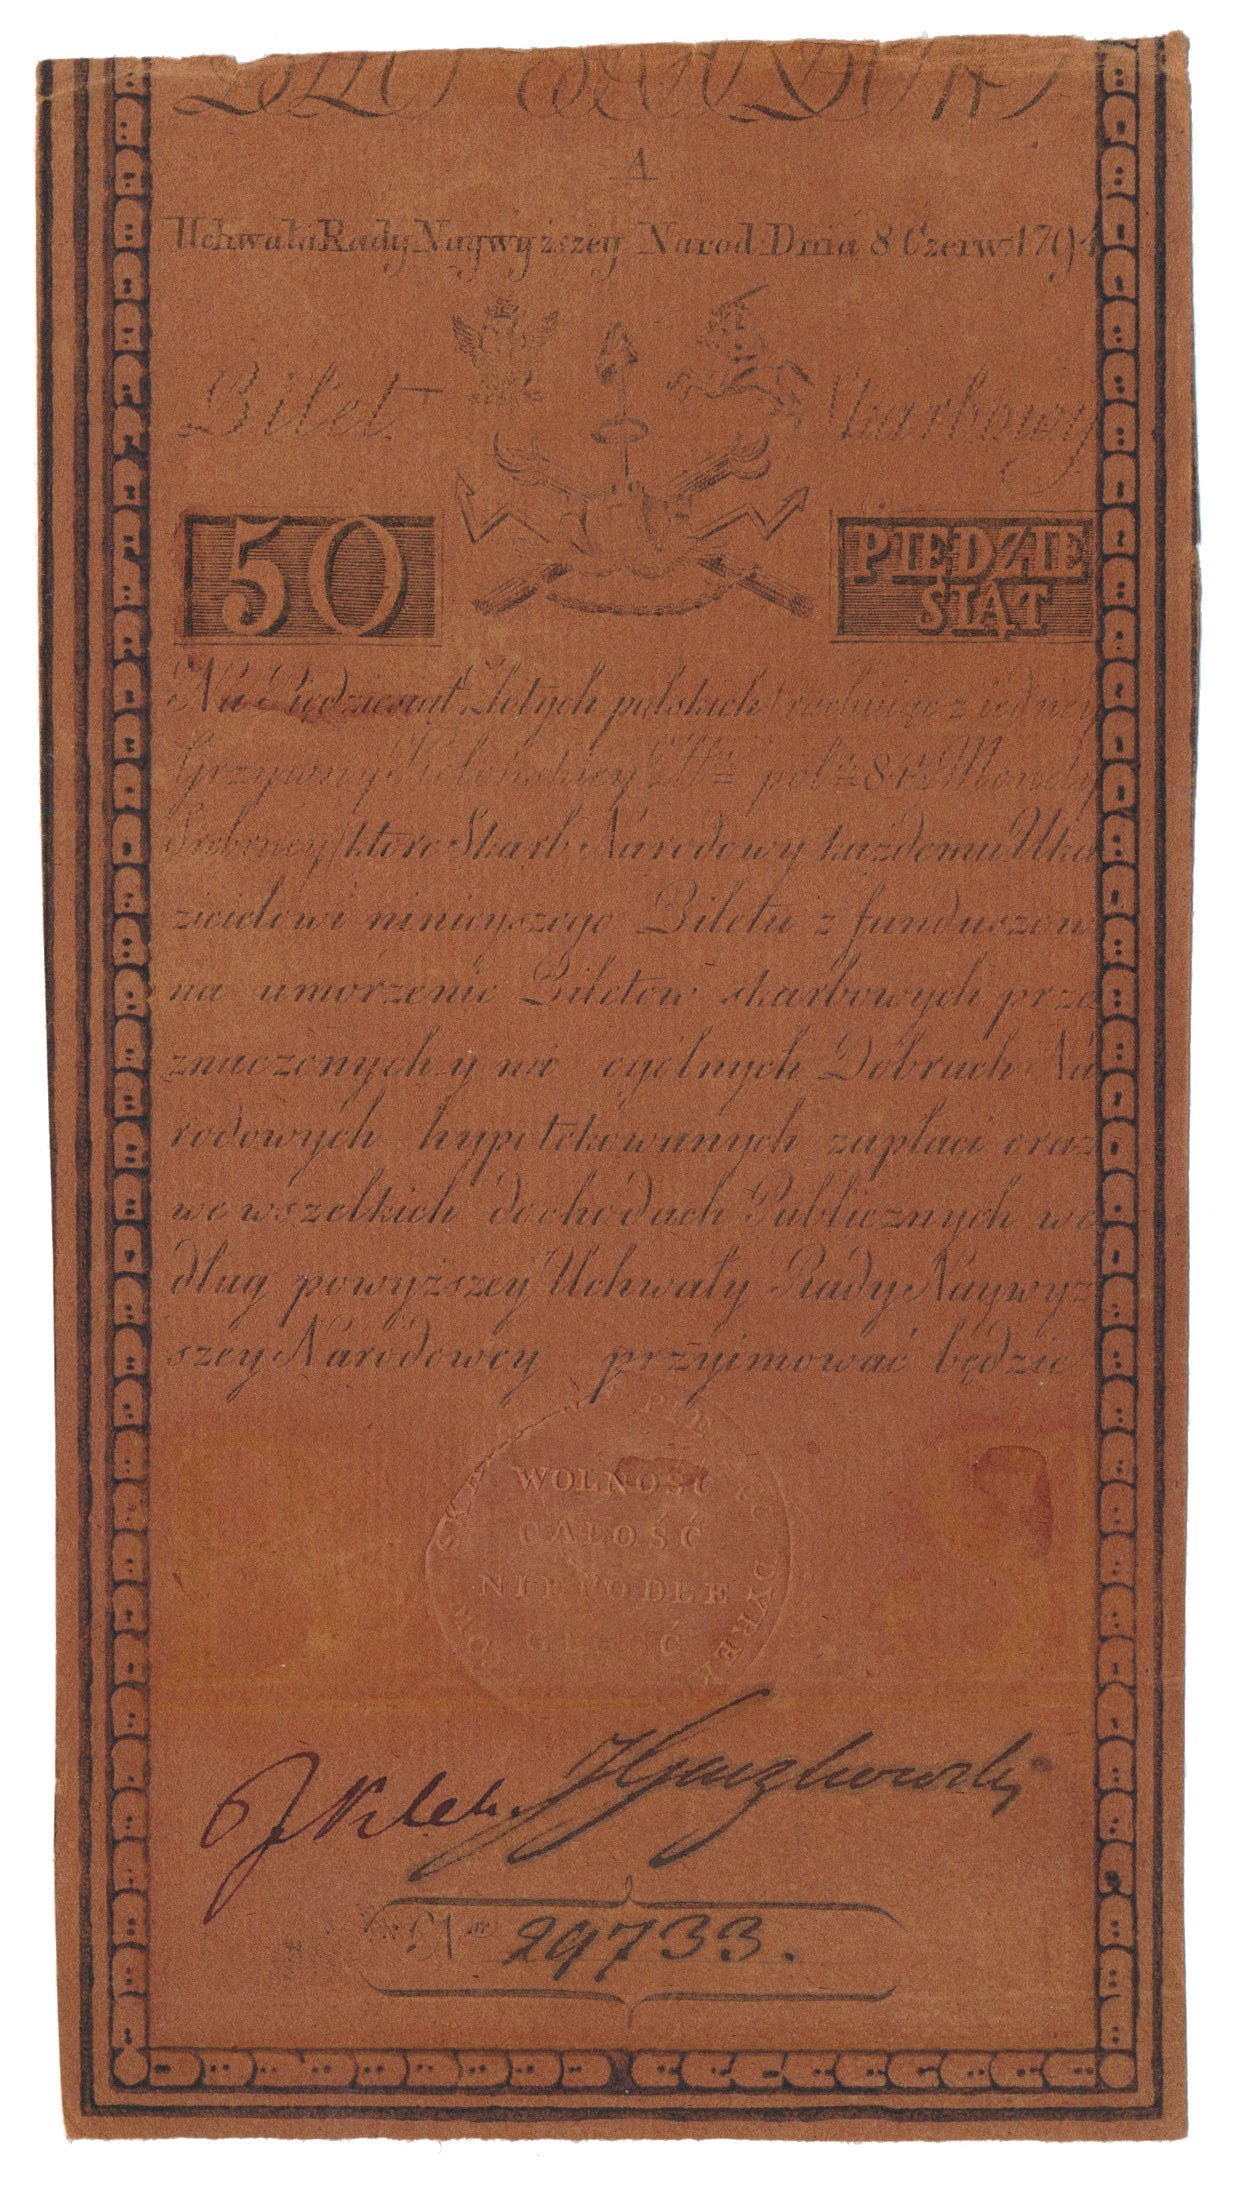 A
Uchwała Rady Naywyższey Narod: Dnia 8 Czerw: 1794
Bilet Skarbowy
50 PIĘDZIE
SIĄT
Na Piędziesiąt Złotych polskich (rachuiąc z iedney
Grzywny Kolońskiey Złł: pol: 84½ Monety
Srebrney) ktore Skarb Narodowy każdemu Uka
zicielowi ninieyszego Biletu z funduszow
na umorzenie Biletow skarbowych prze
znaczonych y na ogólnych Dobrach Na
rodowych hypotekowanych zapłaci oraz
we wszelkich dochodach Publicznych we
dług powyższey Uchwały Rady Naywyż
szey Narodowey przyimować będzie
WOLNOŚĆ
CAŁOŚĆ
NIEPODLE
GŁOŚĆ
DYREK
29733.